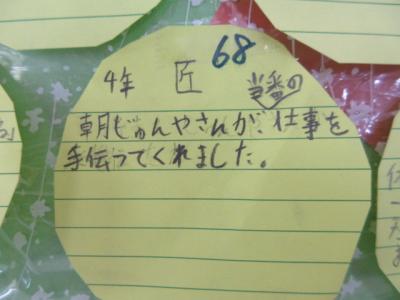 68
4年 匠
当番の
朝じゅんやさんが、仕事を
手伝ってくれました。